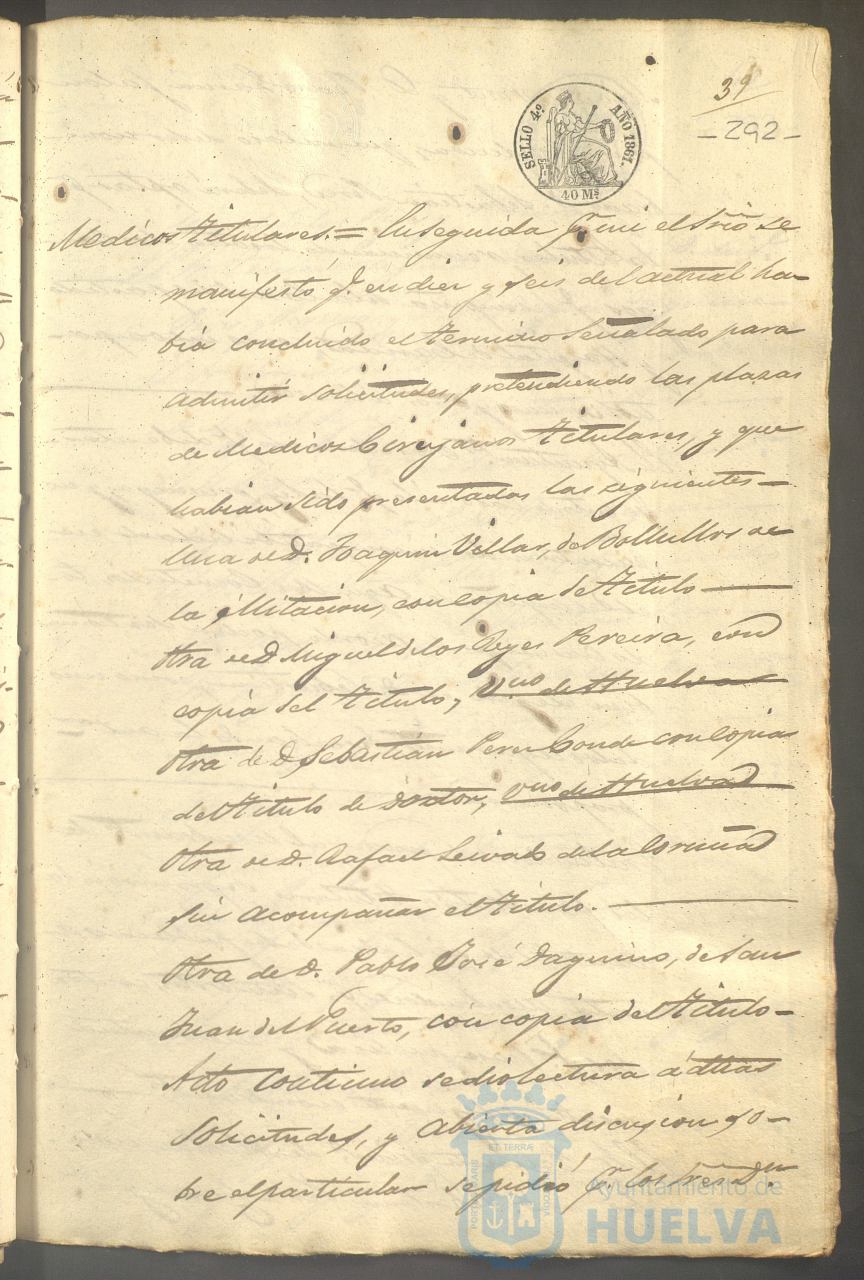 39
-292-
SELLO 4º AÑO 1861.
40 Ms.
Medicos Titulares.= Enseguida pr. mi el Srio se
manifestó q. en diez y seis del actual ha-
bia concluido el termino señalado para
admitir solicitudes, pretendiendo las plazas
de Medicos Cirujanos Titulares, y que
habian sido presentadas las siguientes-
Una de D. Joaquin Villar, de Bollullos de
la Mitacion, con copia de Titulo
Otra de D. Miguel de los Reyes Pereira, con
copia del Titulo, Vno de Huelva
Otra de D. Sebastián Perez Conde con copia
del Titulo de Doctor, vno de Huelva
Otra de D. Rafael de la Coruña
sin acompañar el Titulo.
Otra de D. Pablo José Daguino, de San
Juan del Puerto, con copia del Titulo-
Acto continuo se dio lectura á dhas
solicitudes, y abierta discusion so-
bre el particular se pidió pr. los Sres Dn
PORTUS MARIS ET TERRÆ CUSTODIA
Ayuntamiento de
HUELVA